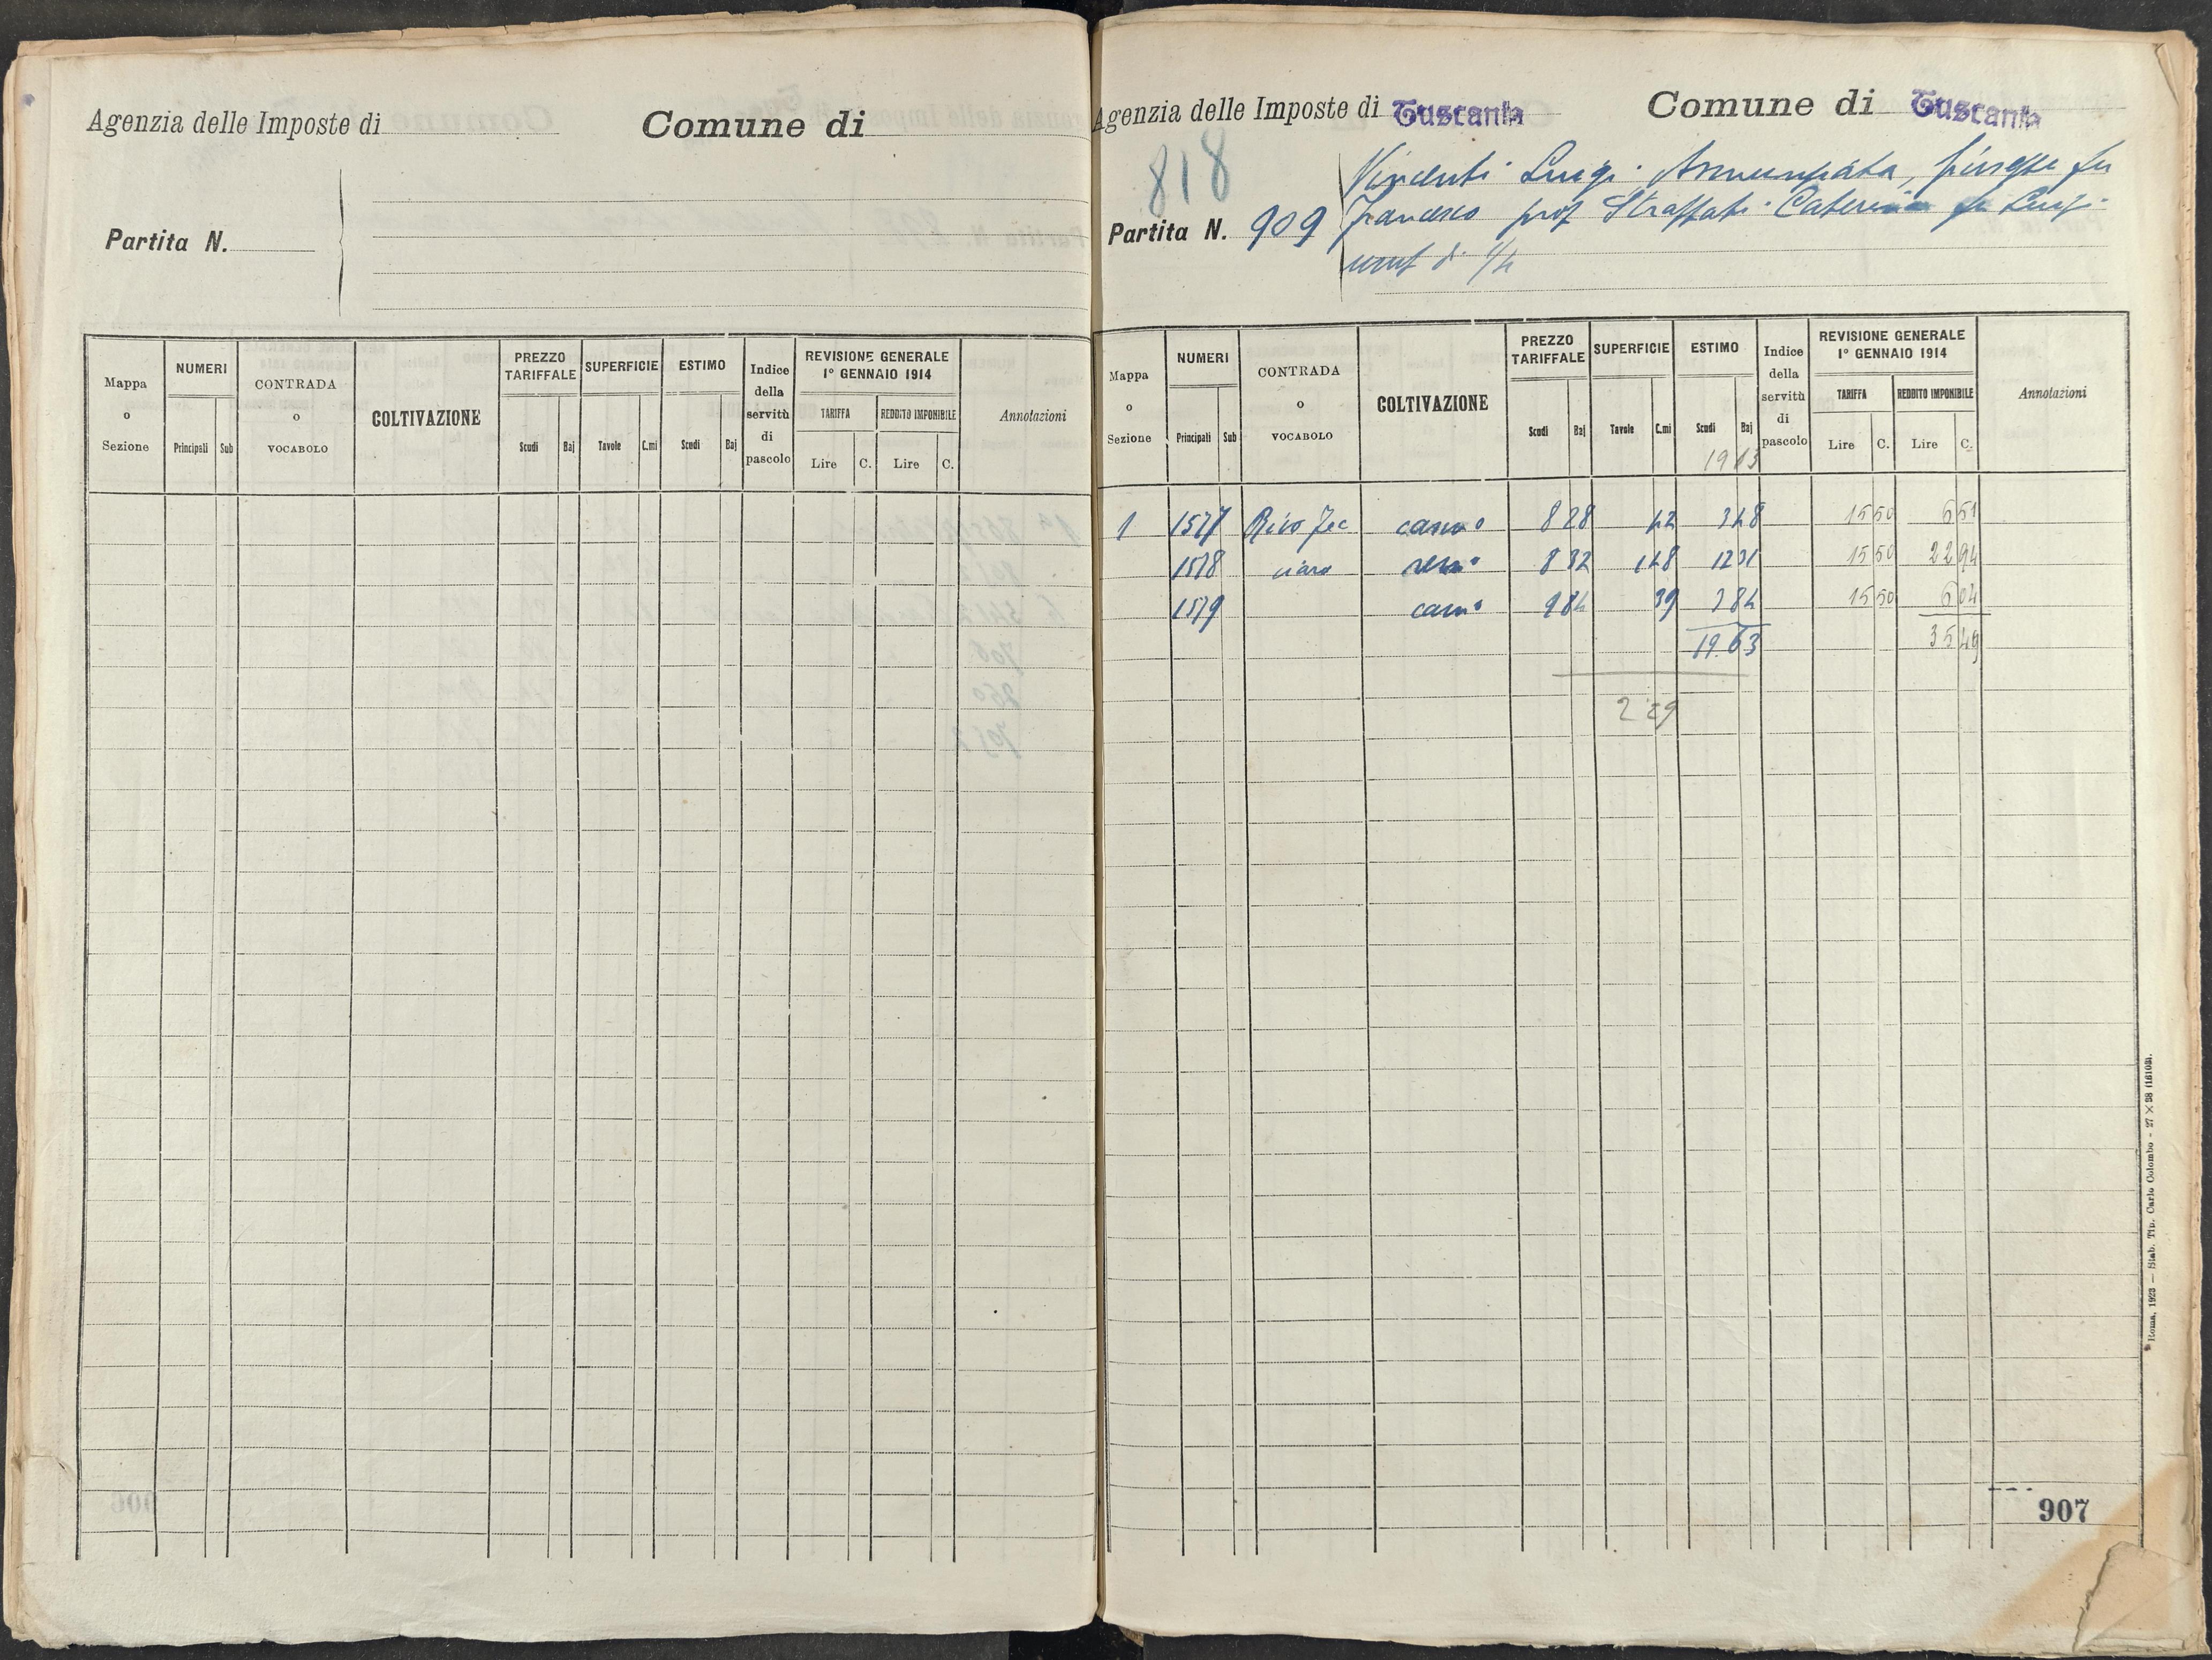 Agenzia delle Imposte di
Comune di
Partita N.
Mappa o Sezione
NUMERI
Principali Sub
CONTRADA O VOCABOLO
COLTIVAZIONE
PREZZO TARIFFALE
Scudi Baj
SUPERFICIE
Tavole C.mi
ESTIMO
Scudi Baj
Indice della servitù di pascolo
REVISIONE GENERALE
1° GENNAIO 1914
TARIFFA REDDITO IMPONIBILE
Lire C. Lire C.
Annotazioni
Agenzia delle Imposte di Tuscania
Comune di Tuscania
818
Partita N. 909
Vincenti Luigi Annunziata, Giuseppe fu
Francesco prop Straffati Caterina fu Luigi
usuf di 1/4
Mappa o Sezione
NUMERI
Principali Sub
CONTRADA O VOCABOLO
COLTIVAZIONE
PREZZO TARIFFALE
Scudi Baj
SUPERFICIE
Tavole C.mi
ESTIMO
Scudi Baj
1963
Indice della servitù di pascolo
REVISIONE GENERALE
1° GENNAIO 1914
TARIFFA REDDITO IMPONIBILE
Lire C. Lire C.
Annotazioni
1 1577 Rivo Fec 8 28 42 3 48 15 50 6 51
1578 ciaro 8 32 1 48 12 31 15 50 22 94
1579 9 84 39 3 84 15 50 6 04
19 63 35 49
2 29
907
Roma, 1923 — Stab. Tip. Carlo Colombo - 27 × 38 (16105).